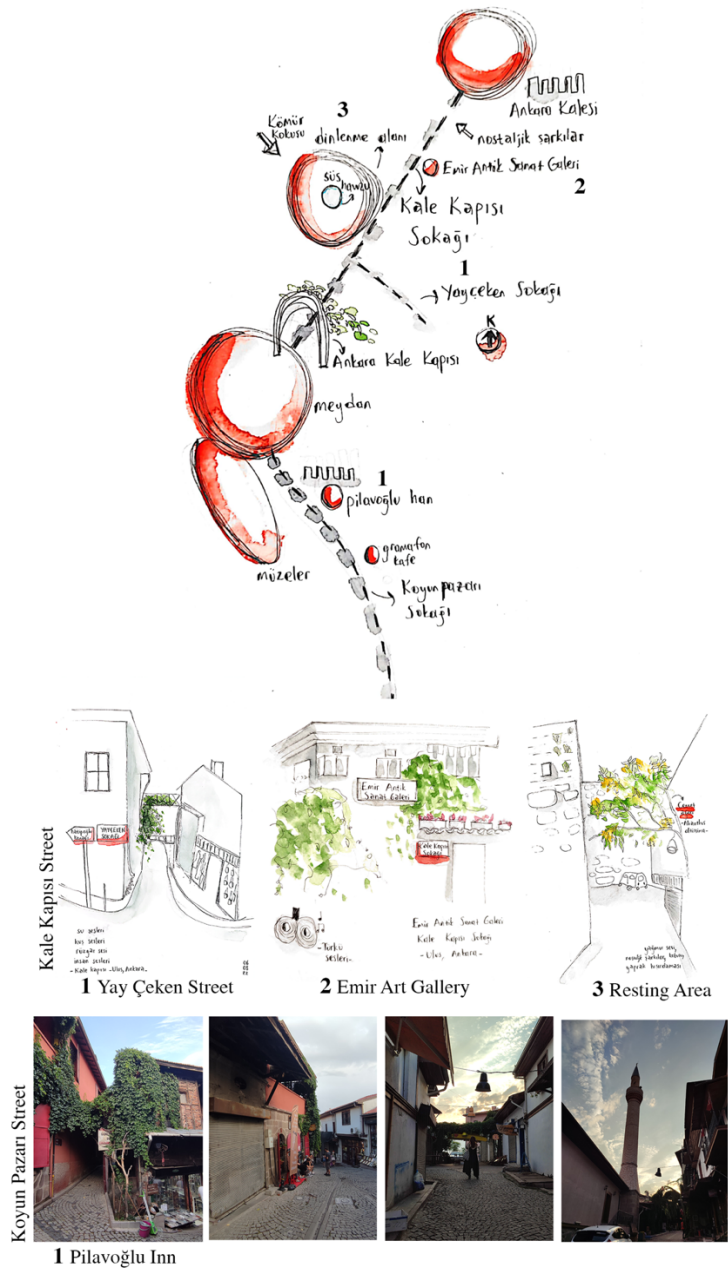 Ankara Kalesi
nostaljik şarkılar
Kömür
kokusu
3
dinlenme alanı
süs
havuzu
Emir Antik Sanat Galeri
2
Kale Kapısı
Sokağı
1
Yayçeken Sokağı
K
Ankara Kale Kapısı
meydan
1
pilavoğlu han
gramafon
kafe
müzeler
Koyun pazarı
Sokağı
Kale Kapısı Street
YAYÇEKEN
SOKAĞI
su sesleri
kuş sesleri
rüzgar sesi
insan sesleri
-Kale kapısı -Ulus, Ankara-
1 Yay Çeken Street
Emir Antik
Sanat Galeri
Kale Kapısı
Sokağı
-Türkü
sesleri-
Emir Antik Sanat Galeri
Kale Kapısı Sokağı
-Ulus, Ankara-
2 Emir Art Gallery
nostalji şarkıları,
yaprak hışırdaması
3 Resting Area
Koyun Pazarı Street
1 Pilavoğlu Inn